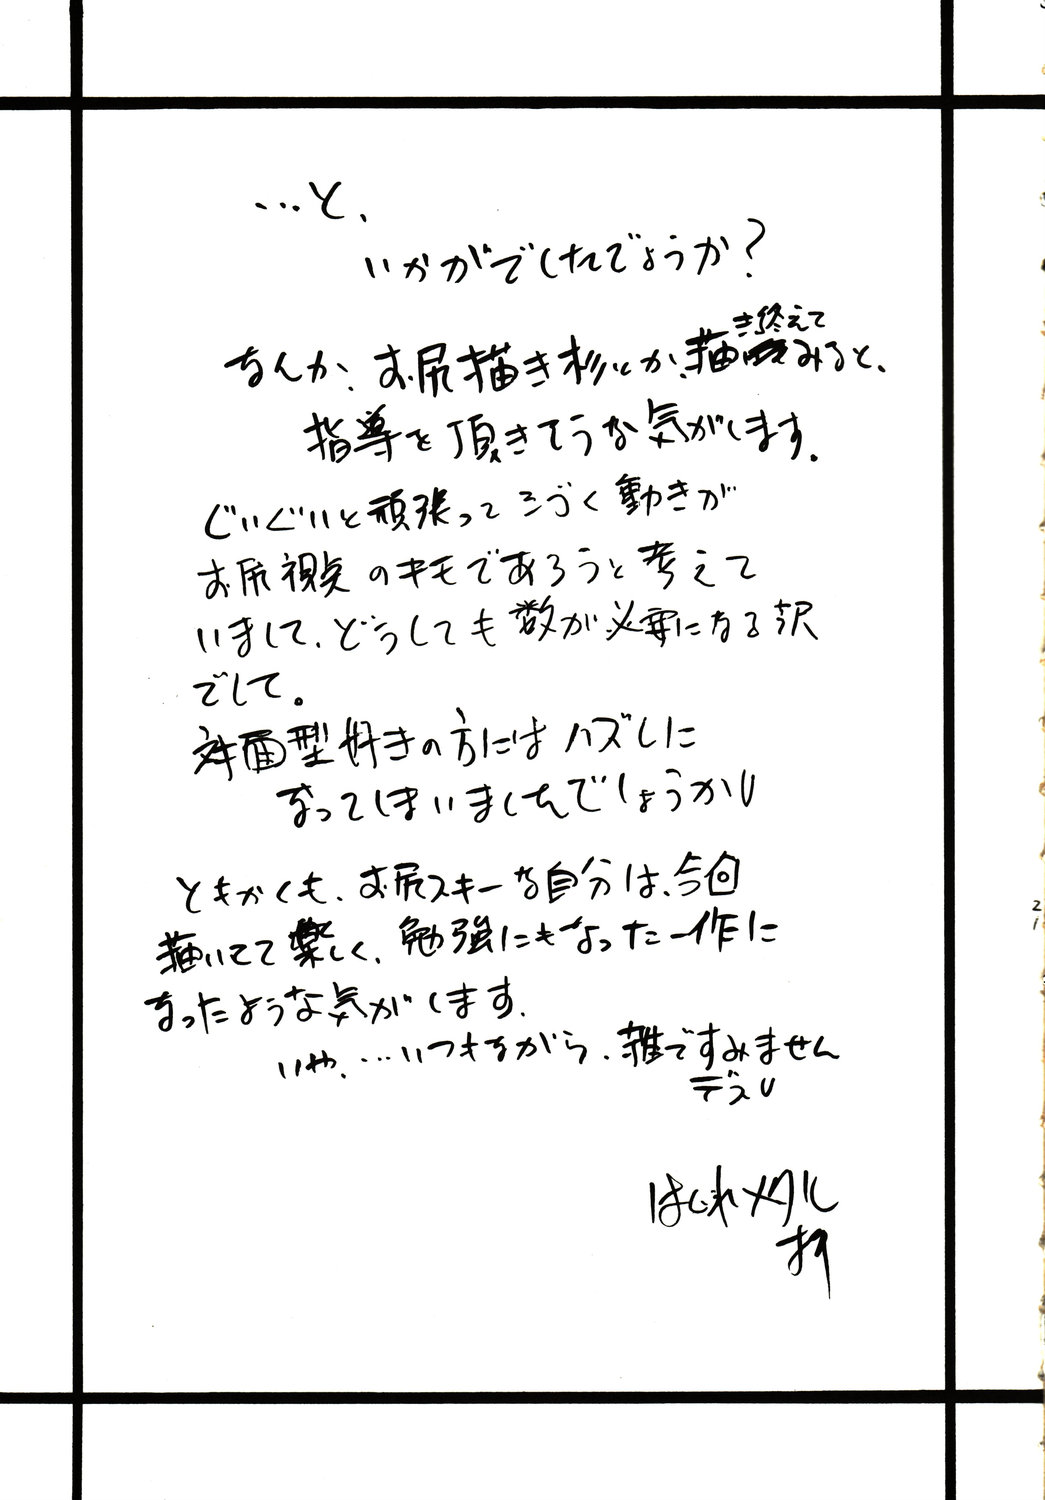 …と、
いかがでしたでしょうか?
なんか、お尻描き杉とか、描き終えてみると、
指導を頂きそうな気がします。
ぐいぐいと頑張ってうごく動きが
お尻視点のキモであろうと考えて
いまして、どうしても数が必要になる訳
でして。
対面型好きの方にはハズしに
なってしまいましたでしょうか
ともかくも、お尻スキーな自分は、今回
描いてて楽しく、勉強にもなった一作に
なったような気がします。
いや、…いつもながら、雑ですみません
デス
はじれメタル
21